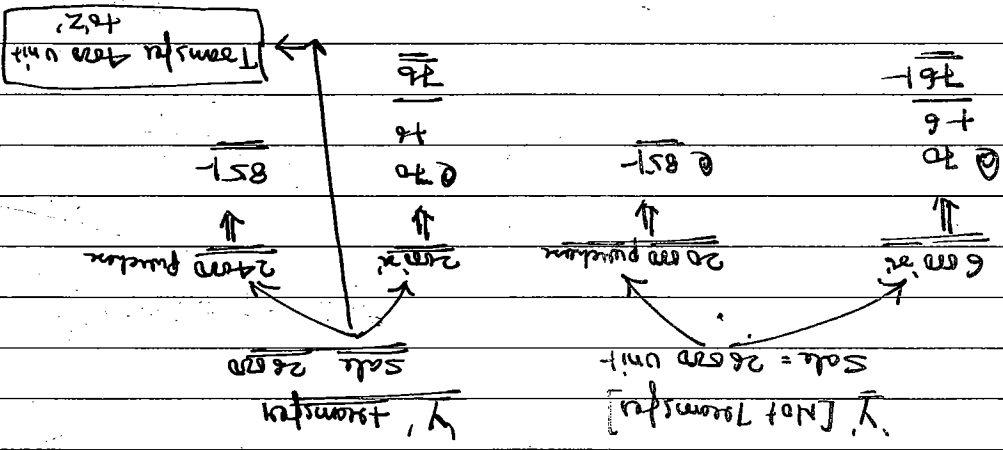 'Y' [Not Transfer]
Sale = 26000 unit
6000 'X' 20000 purchase
@ 70 @ 85/-
+ 6
76/-
'Y' transfer
Sale 26000
2000 'X' 24000 purchase
@ 70 85/-
+6
76
Transfer 4000 unit
to 'Z'